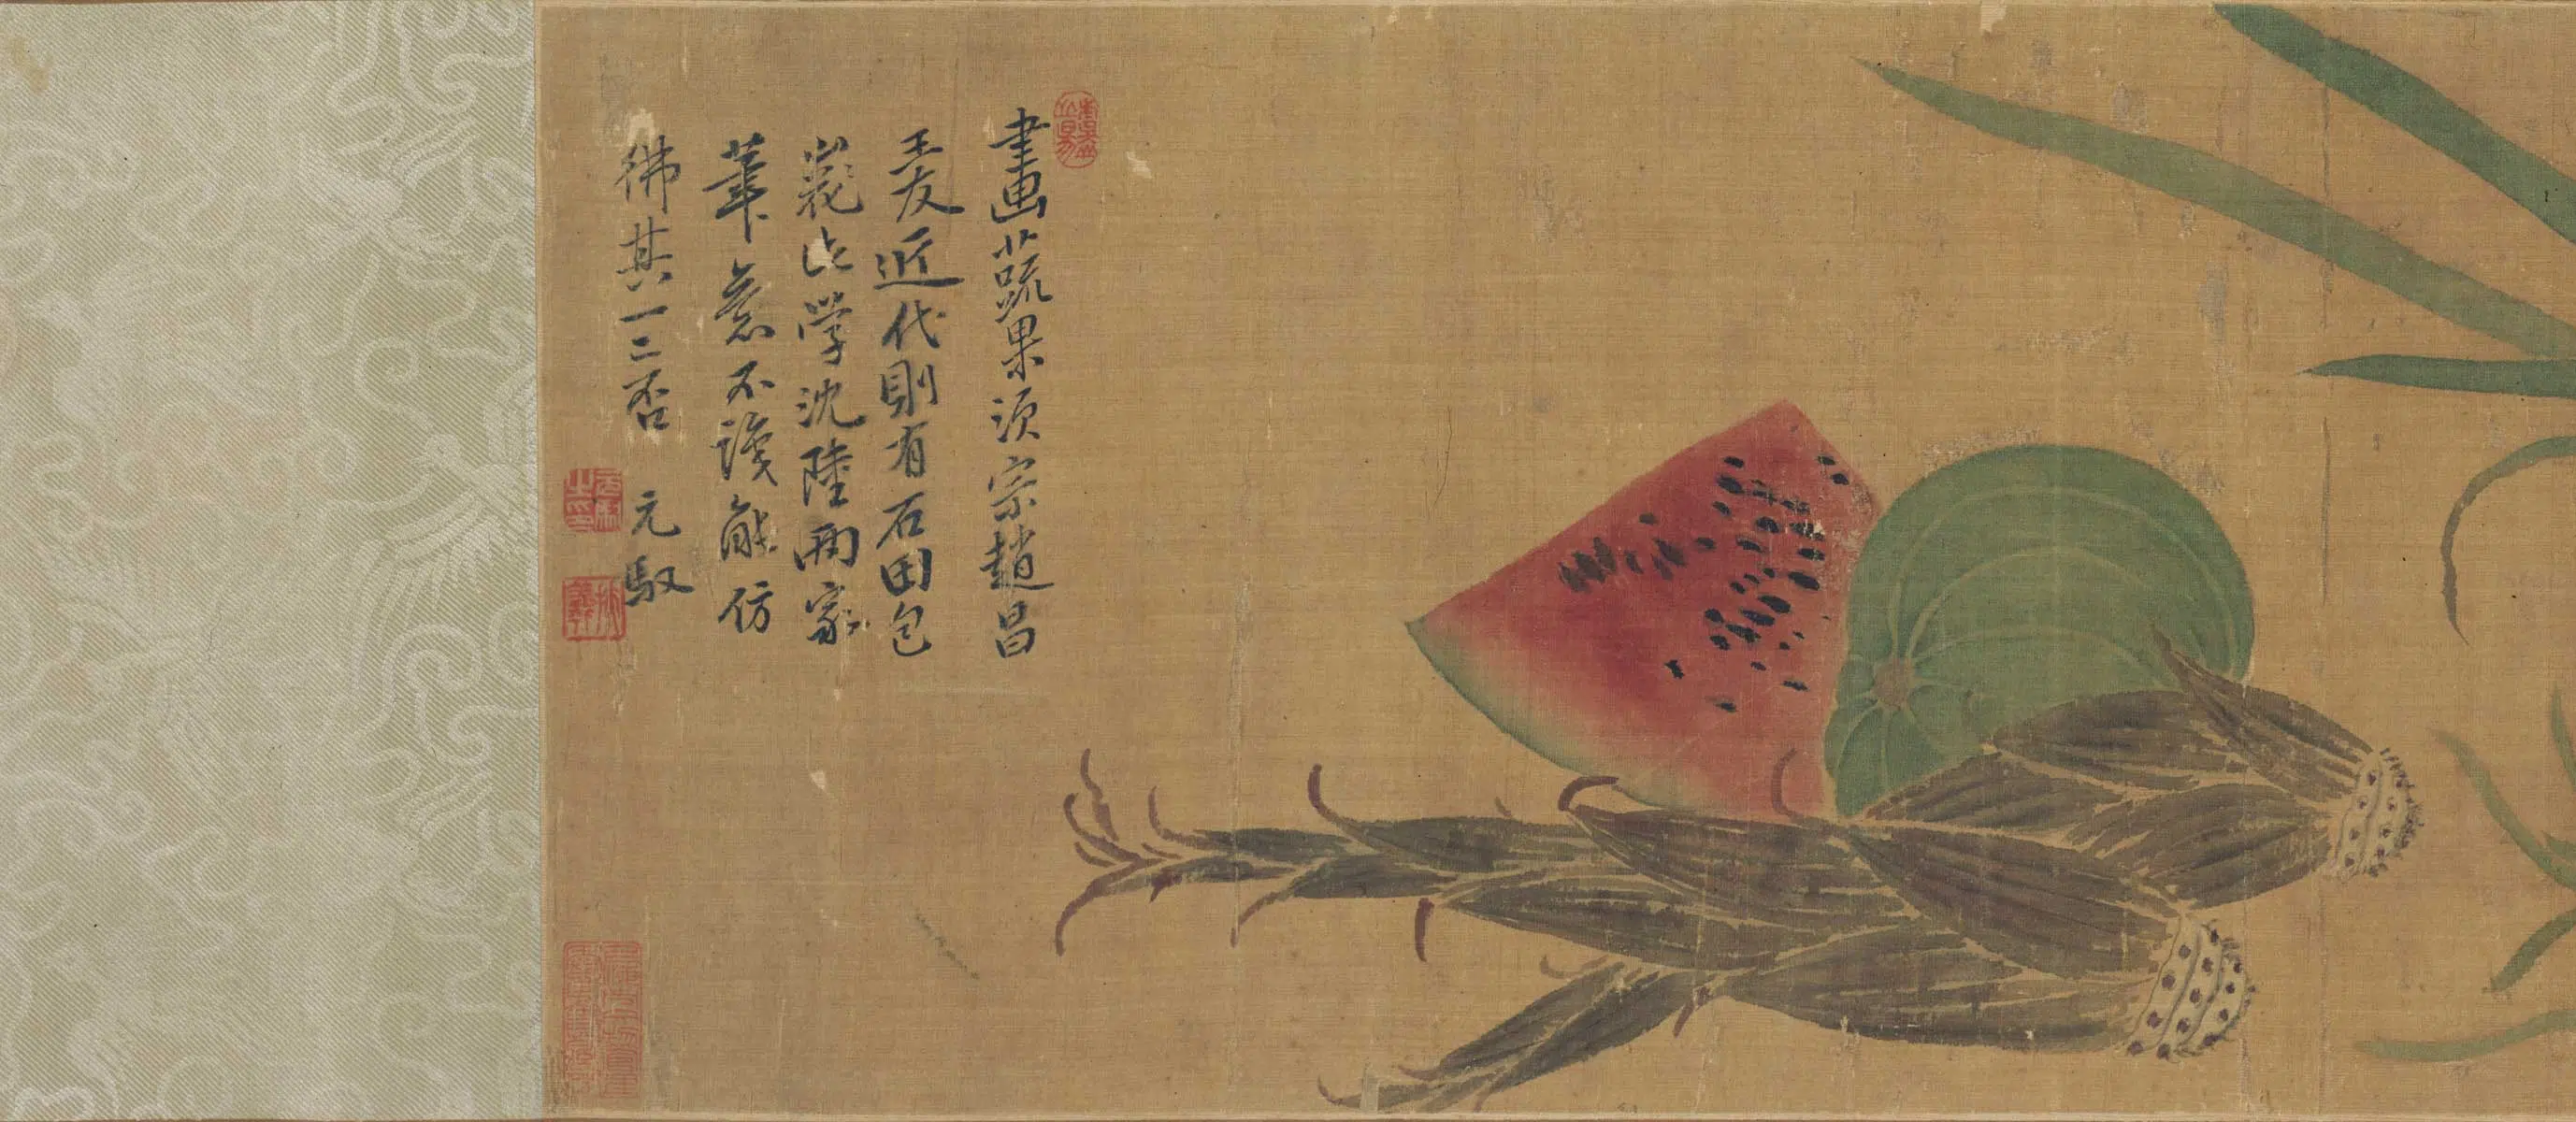 畫蔬果須宗趙昌
王友近代則有石田包
山㦲此學沈陸兩家
筆意不識能仿
彿其一二否 元馭